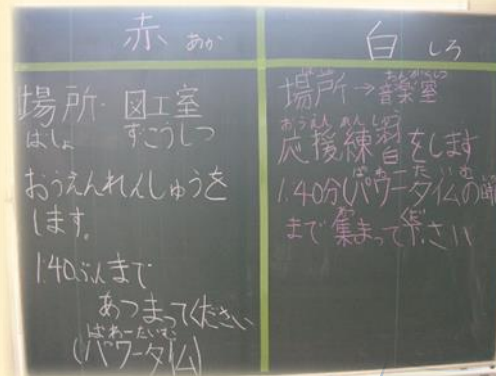 赤 あか
場所・図工室
ばしょ ずこうしつ
おうえんれんしゅうを
します。
1:40ぷんまで
あつまってください
ぱわーたいむ
(パワータイム)
白 しろ
ばしょ おんがくしつ
場所→音楽室
おうえん れんしゅう
応援練習をします
ぱわーたいむ
1:40分(パワータイムの時
あつ くだ
まで集まって下さい